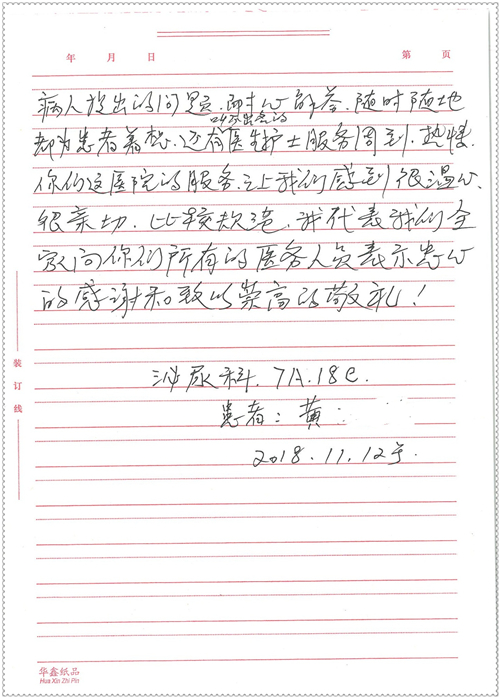 年 月 日 第 页
病人提出的问题.耐心解答.随时随地
都为患者着想.还有医生护士服务周到.热情.
你们这医院的服务.让我们感到很温心.
很亲切.比较欣慰.我代表我们全
家向你们所有的医务人员表示忠心
的感谢和致以荣高的敬礼!
泌尿科.7A.18C.
患者:黄
2018.11.12号.
装订线
华鑫纸品
Hua Xin Zhi Pin